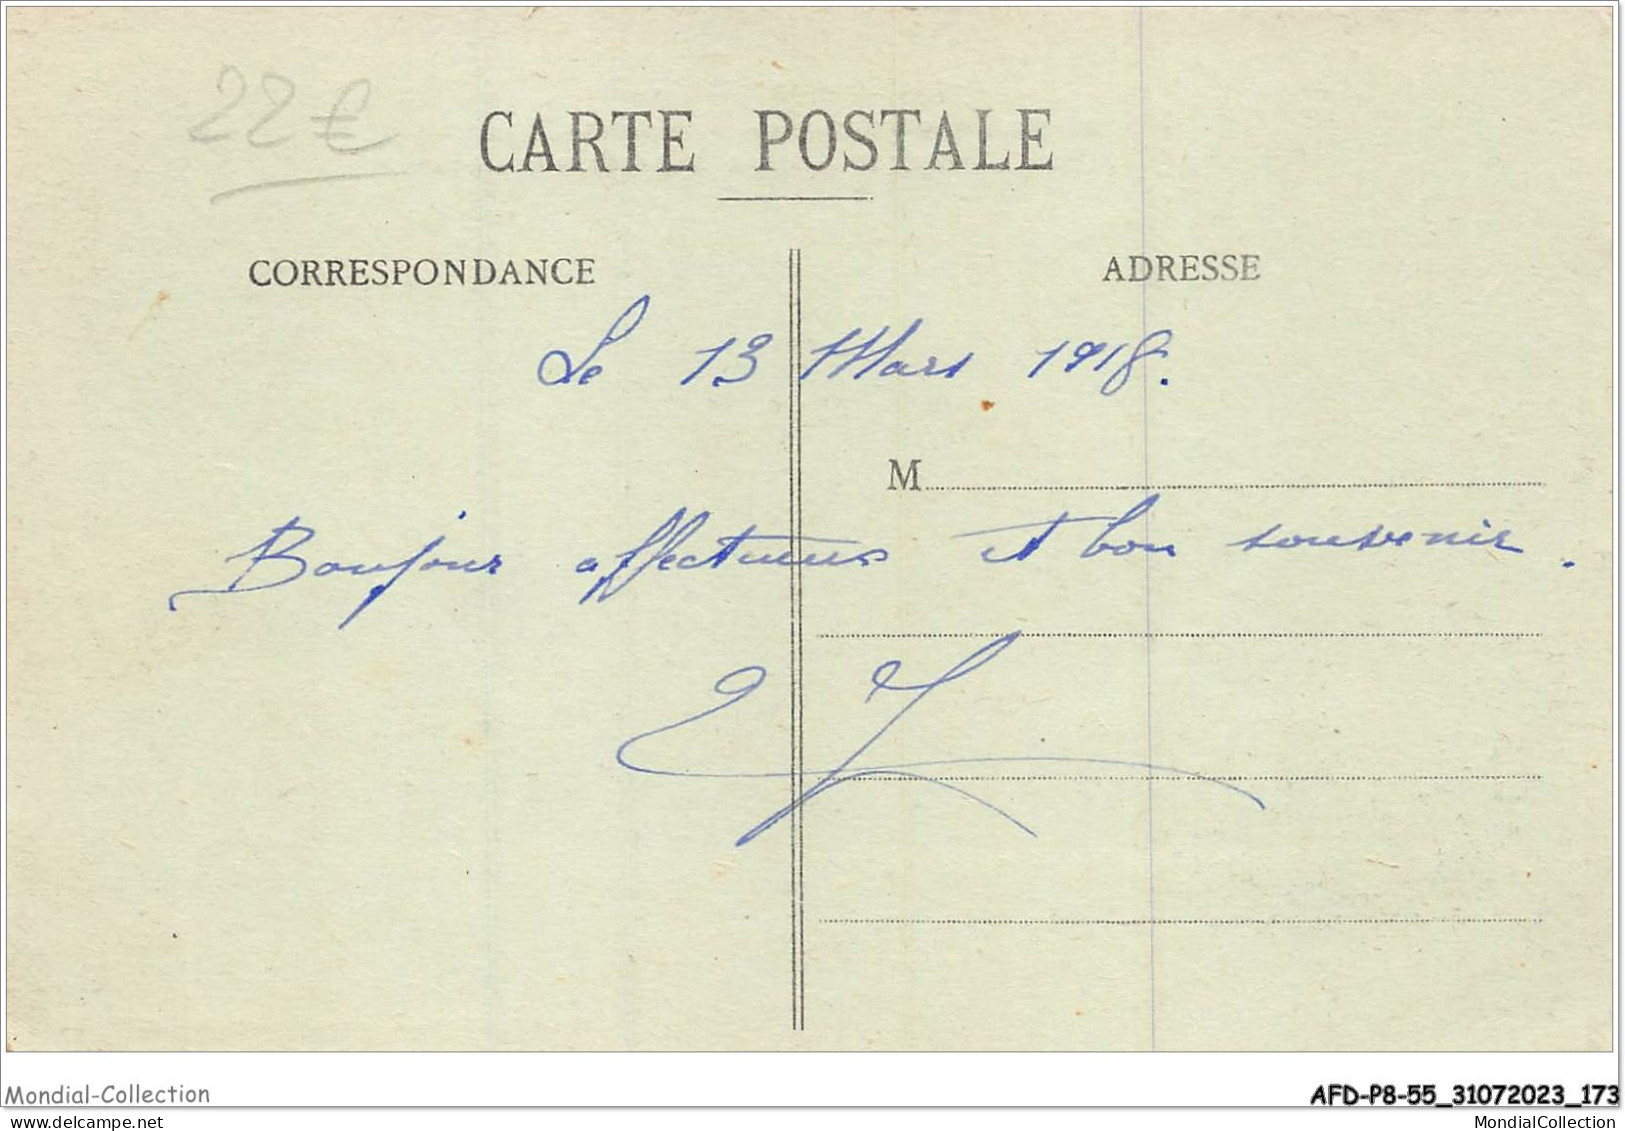 22 €
CARTE POSTALE
CORRESPONDANCE
ADRESSE
Le 13 Mars 1918.
M
Bonjour affectueux et bon souvenir.
Mondial-Collection
AFD-P8-55_31072023_173
mondialcollection.com
MondialCollection